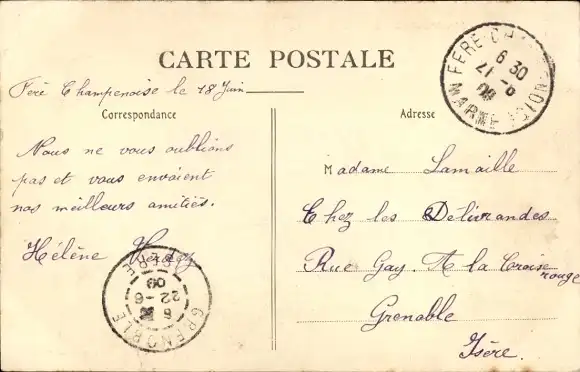 CARTE POSTALE
Fère Champenoise le 18 Juin
Correspondance
Nous ne vous oublions
pas et vous envoient
nos meilleurs amitiés.
Hélène
GRENOBLE
ISERE
6
22-6
09
FERE-CH NOISE
6 30
21-6
09
MARNE
Adresse
Madame Lamaille
Chez les Délivrandes
Rue Gay. A la Croise
rouge
Grenable
Isère.